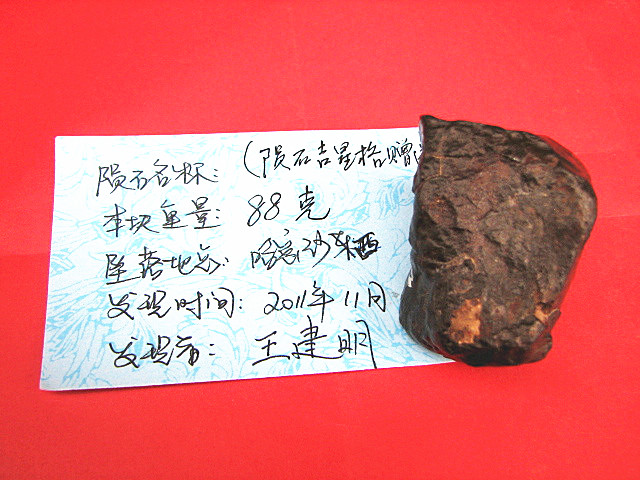 陨石名称: (陨石吉星格赠
本块重量: 88克
坠落地点: 哈密沙
发现时间: 2011年11月
发现者: 王建明